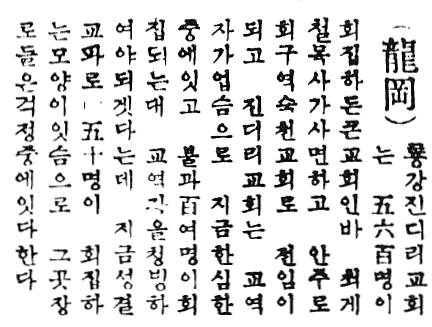 (龍岡) 룡강진디리교회
는 五六百명이
회집하든큰교회인바 최게
철목사가사면하고 안주로
회구역숙천교회로 전임이
되고 진디리교회는 교역
자가업슴으로 지금한심한
중에잇고 불과百여명이회
집되는대 교역각을청빙하
여야되겟다는데 지금성결
교파로 一五十명이 회집하
는모양이잇슴으로 그곳장
로들은걱정중에잇다한다